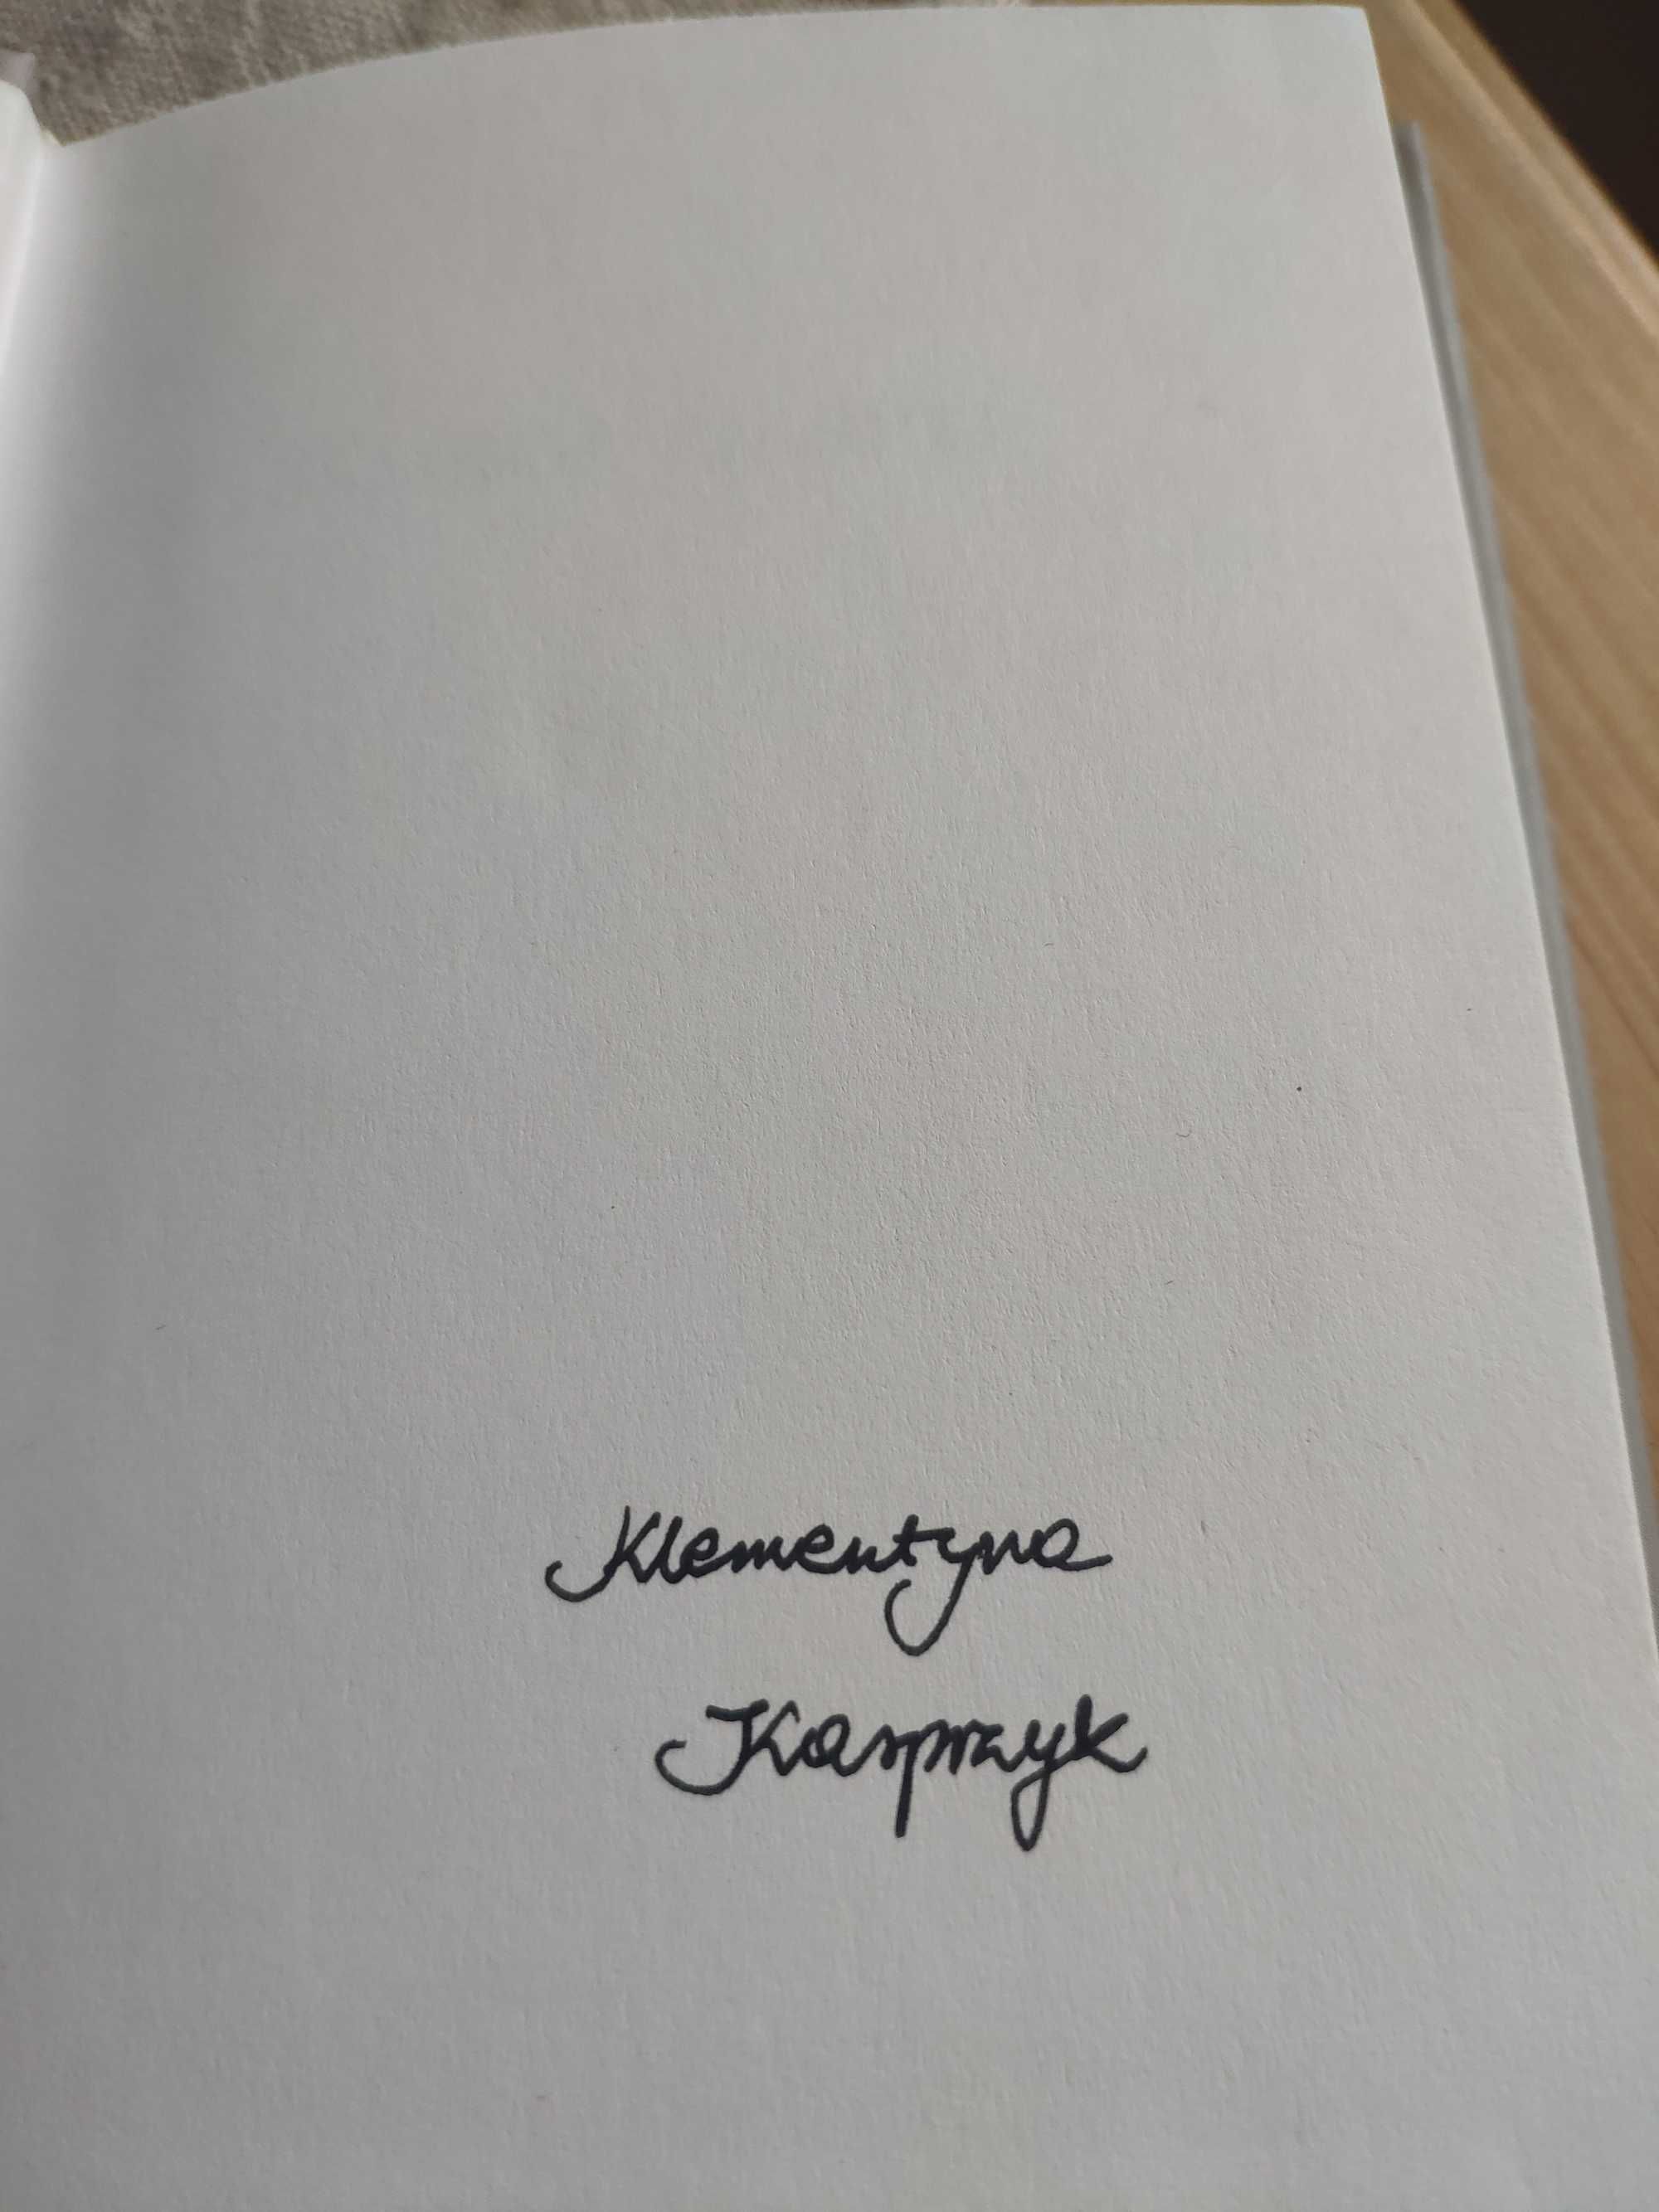 Klementyna
Kasprzyk